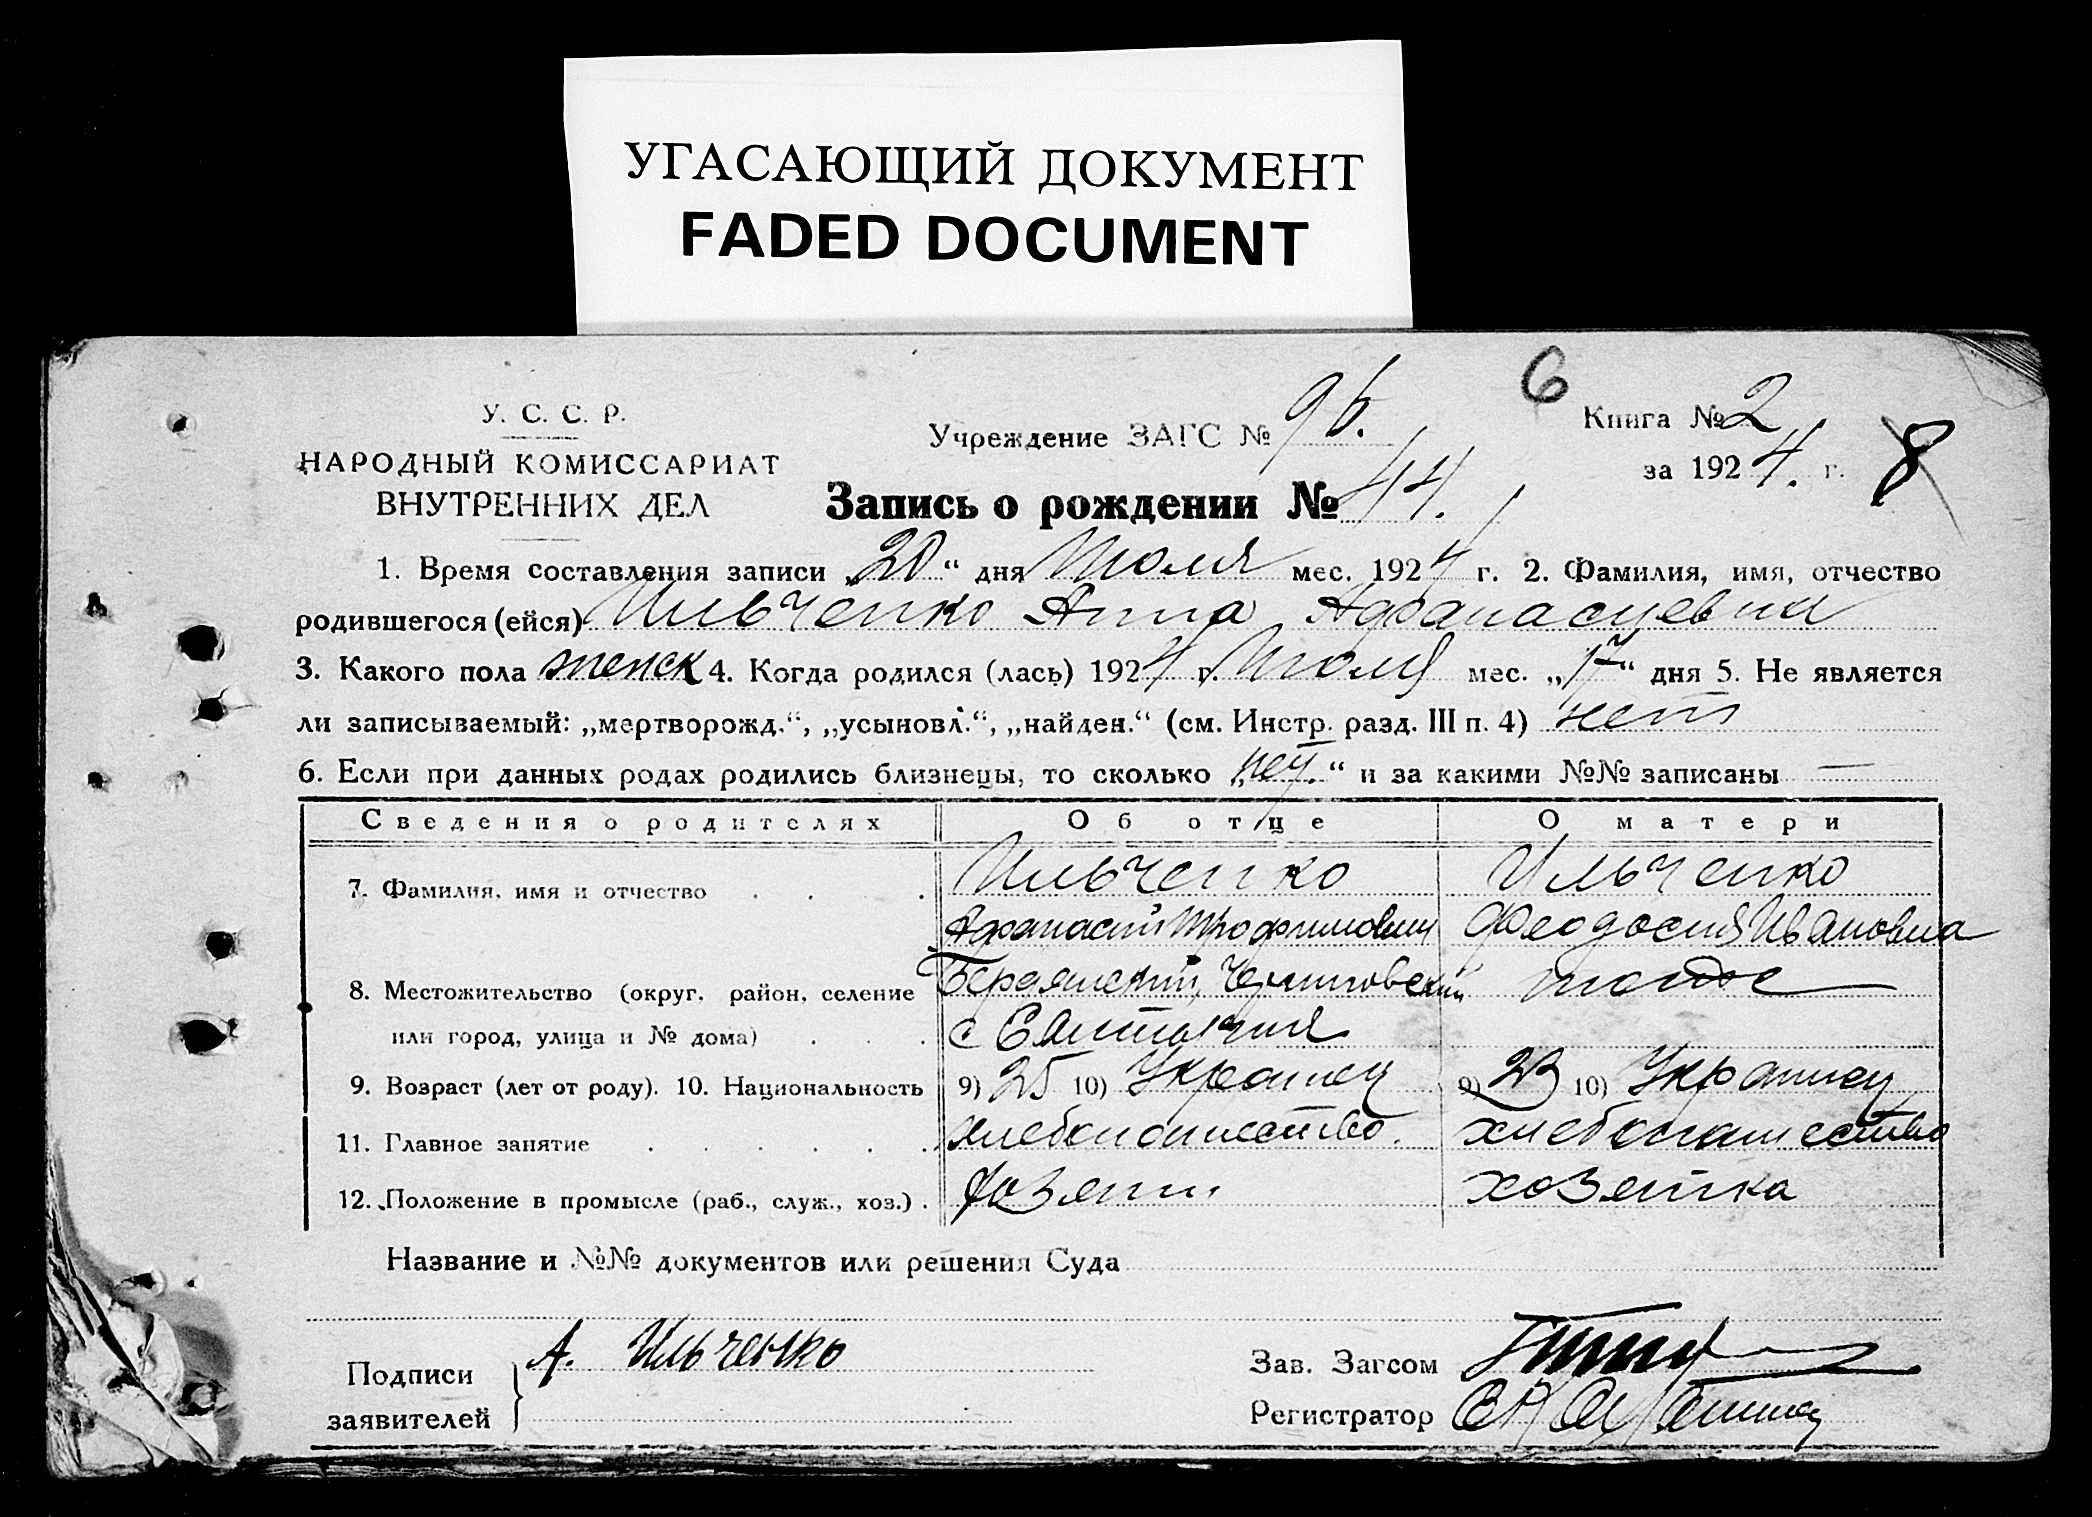 УГАСАЮЩИЙ ДОКУМЕНТ
FADED DOCUMENT
6
У. С. С. Р.
НАРОДНЫЙ КОМИССАРИАТ
ВНУТРЕННИХ ДЕЛ
Учреждение ЗАГС № 96.
Книга № 2
за 1924. г. 8
Запись о рождении № 44.
1. Время составления записи „20“ дня Июля мес. 1924 г. 2. Фамилия, имя, отчество
родившегося (ейся) Ильченко Анна Афанасиевна
3. Какого пола женск 4. Когда родился (лась) 1924 г. Июля мес. „17“ дня 5. Не является
ли записываемый: „мертворожд.“, „усыновл.“, „найден.“ (см. Инстр. разд. III п. 4) нет
6. Если при данных родах родились близнецы, то сколько „нет.“ и за какими №№ записаны —
Сведения о родителях Об отце О матери
7. Фамилия, имя и отчество Ильченко Ильченко
Афанасий Трофимович Феодосия Ивановна
8. Местожительство (округ, район, селение Бердянский, Черниговский тоже
или город, улица и № дома) с
9. Возраст (лет от роду). 10. Национальность 9) 25 10) Украинец 9) 23 10) Украинец
11. Главное занятие хлебопашество. хлебопашество
12. Положение в промысле (раб., служ., хоз.) Хозяин хозяйка
Название и №№ документов или решения Суда
Подписи
заявителей
А. Ильченко
Зав. Загсом
Регистратор